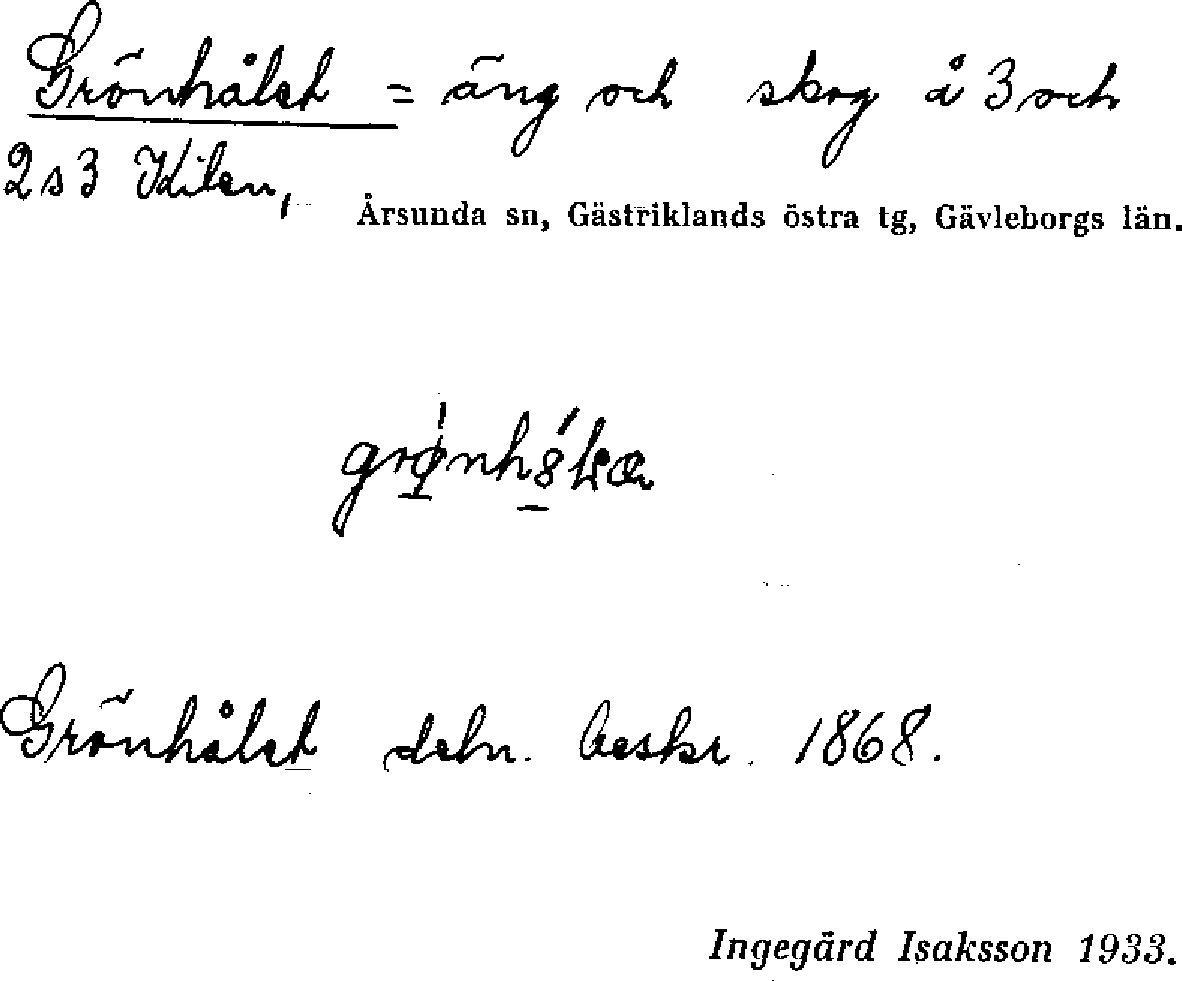 Grönhålet = äng och skog å 3 och
2 s 3 Kilen,
Årsunda sn, Gästriklands östra tg, Gävleborgs län.
Grönhålet deln. beskr. 1868.
Ingegärd Isaksson 1933.